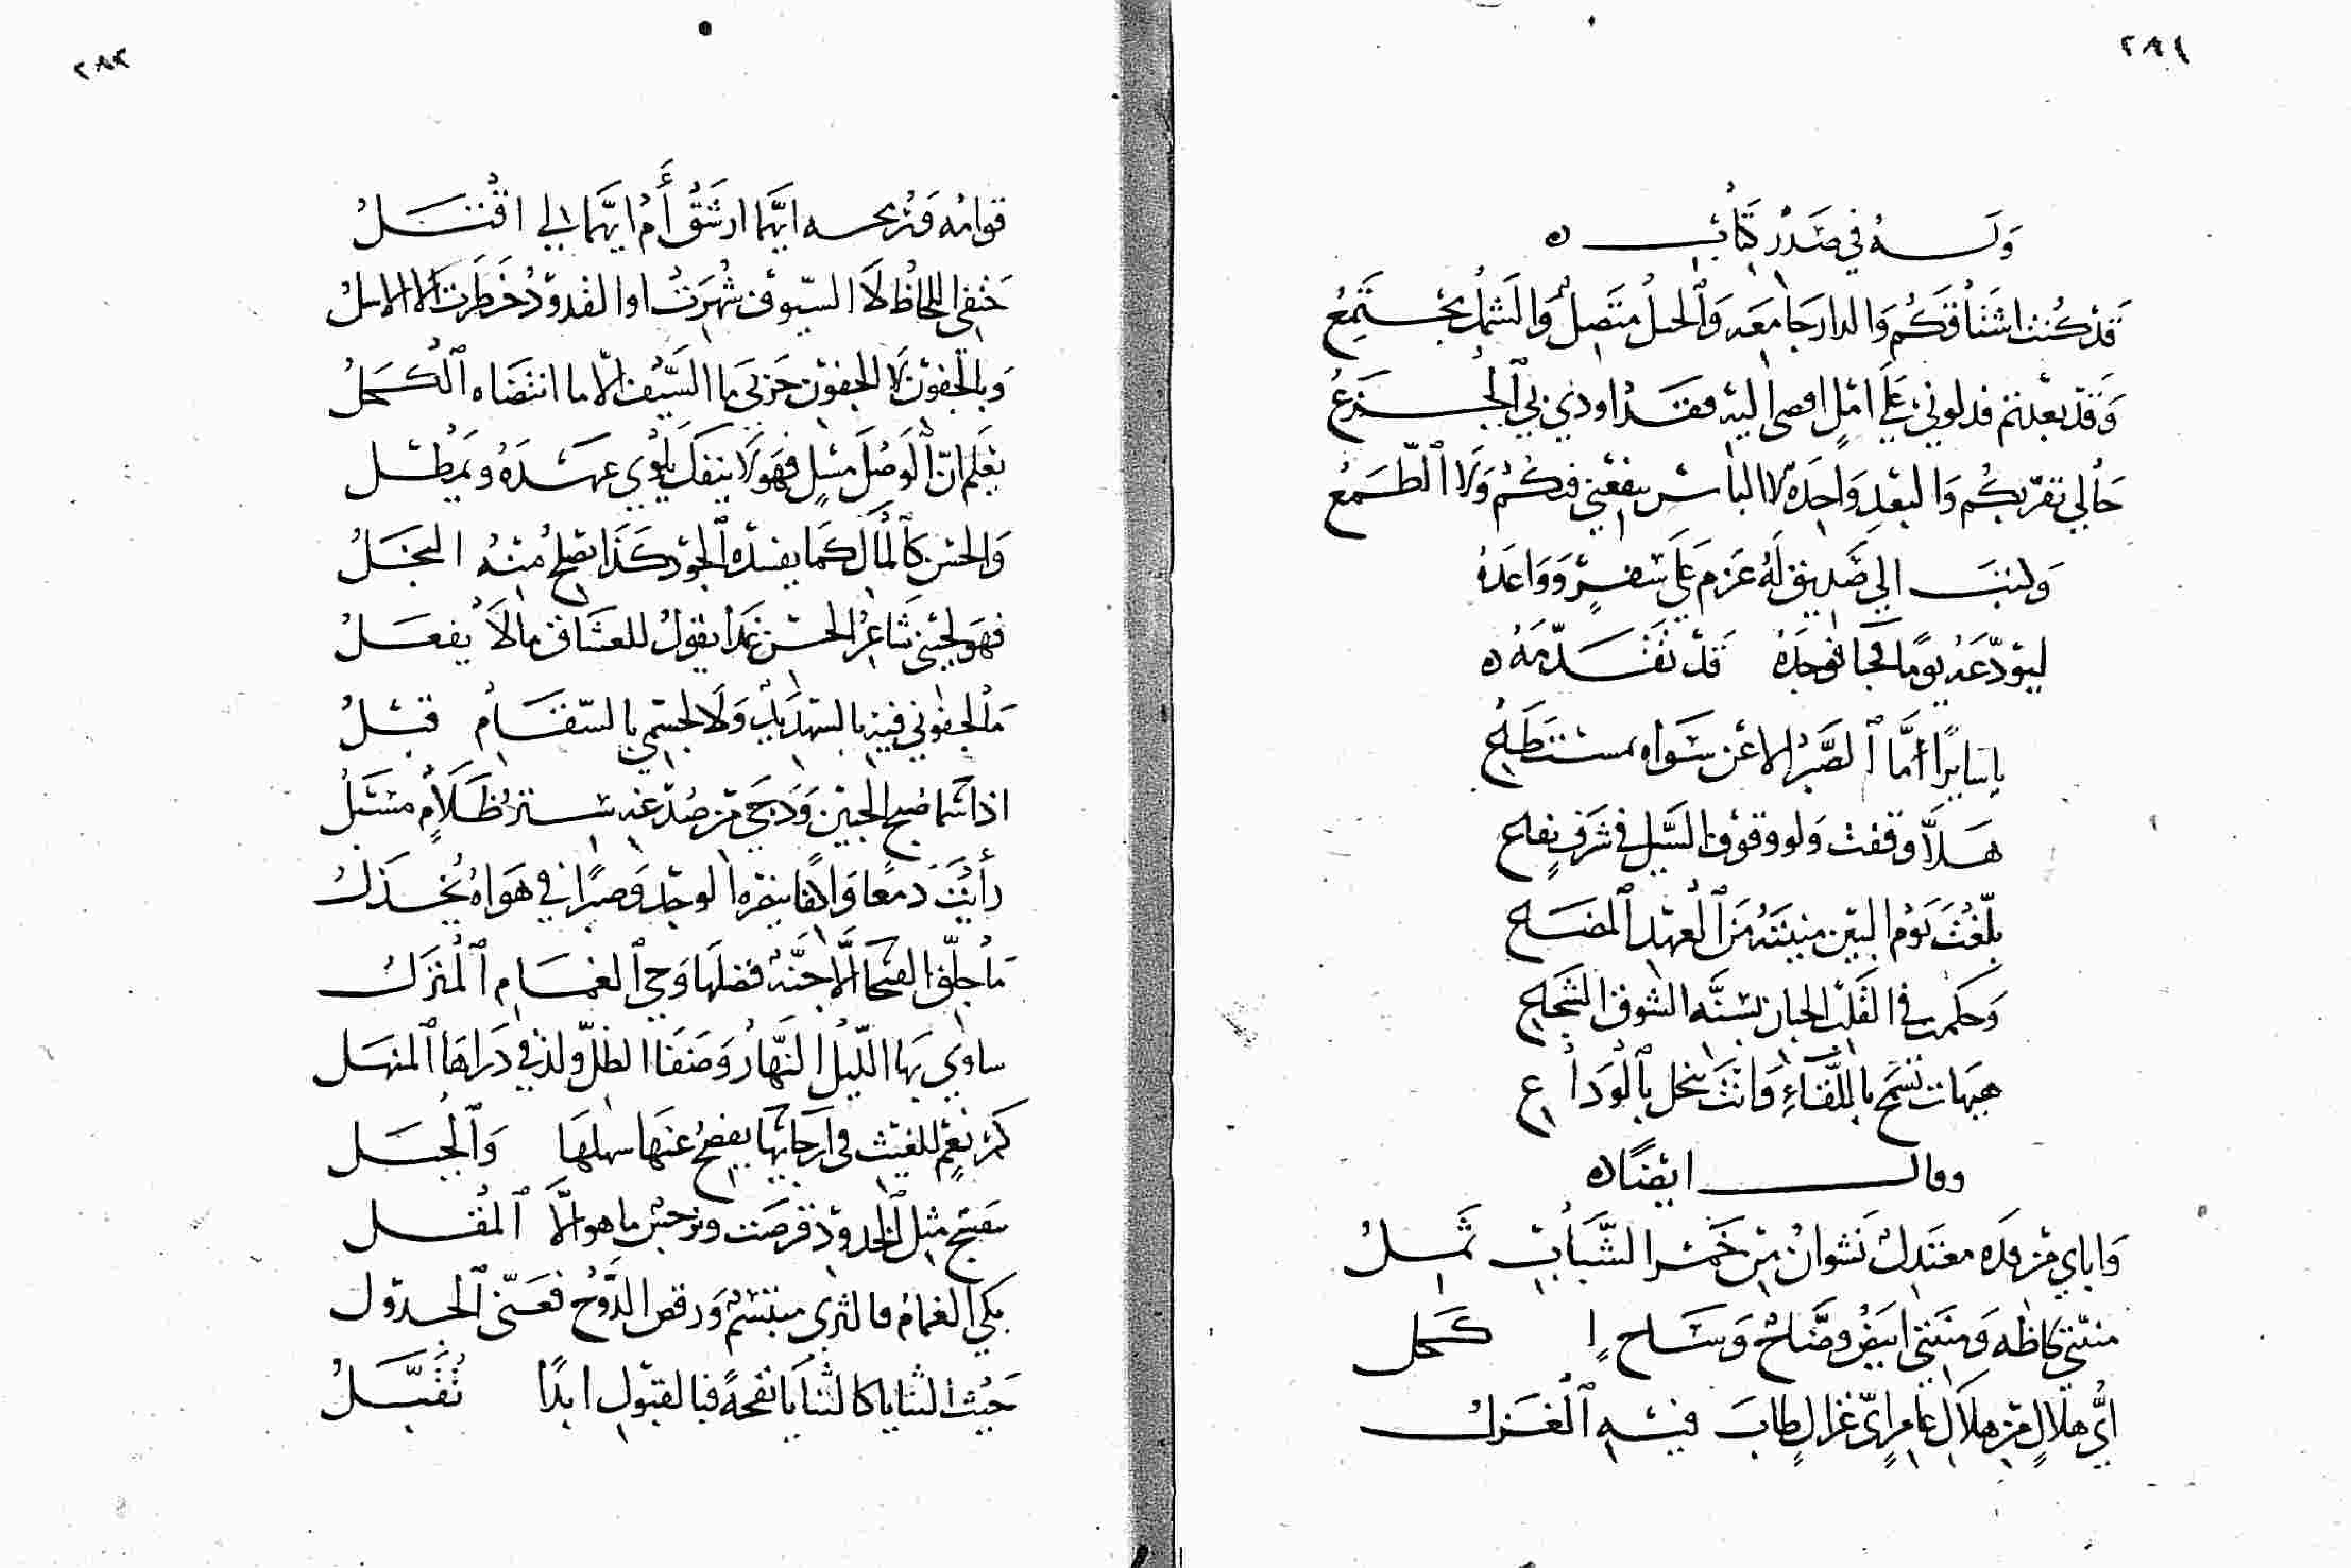 ٢٨١
وله في صدر كتاب ه
قد كنت اشتاقكم والدار جامعه والحبل متصل والشمل مجتمع
وقد بعدتم فدلوني على امل افضى اليه فقد اودى بي الجزع
حالي تقربكم والبعد واحدة لا الياس ينفعني فيكم ولا الطمع
وكتب الى صديق له عزم على سفر وواعده
ليودعه يوما فجا فوجده قد تقدمه ه
يا سايرا اما الصبر الا عن سواه مستطاع
هلا وقفت ولو وقوف السيل في شرف يفاع
بلغت يوم البين منيته من العهد المضاع
وحكمت في القلب الجبان بسنه الشوق الشجاع
هيهات تسمح باللقاء وانت تبخل بالوداع
وقال ايضا ه
وابابي من قده معتدل نشوان من خمر الشباب ثمل
منيتي لحاظه ومنيتي ابيض وضاح وساج اكحل
اي هلال من هلال عامر اي غزال طاب فيه الغزل
٢٨٢
قوامه ام ايهما لي اقتل
حتفي اللحاظ لا السيوف شهرت او القدود خطرت لا الاسل
وبالجفون لا الجفون حزني ما السيف الا ما انتضاه الكحل
يعلم ان الوصل فهو لا ينفك يلوي عهده ويمطل
والحسن كالمال كما يفسده الجود كذا يصلح منه البخل
فهو لحيني شاعر الحسن غدا يقول للعشاق ما لا يفعل
ما لجفوني فيه بالتسهيد ولا لجسمي بالسقام قبل
اذا سما صبح الجبين ودجى من صدغه ستر ظلام مسبل
رأيت دمعا وافيا ينصره الوجد وصبرا في هواه يخذل
ما جلق الفيحا الا جنة فضلها وحي الغمام المنزل
ساوى بها الليل النهار وضفا الظل ولذ في ذراها المنهل
كم نعم للغيث في ارجايها يفصح عنها سهلها والجبل
بنفسج مثل الخدود قرصت ونرجس ما هو الا المقل
بكى الغمام فالثرى مبتسم ورقص الدوح فغنى الجدول
حيث الثنايا كالثنايا نفحة فبالقبول ابدا تقبل